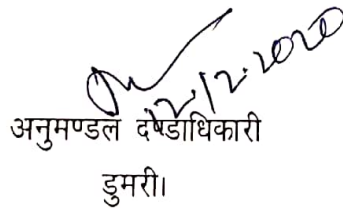 2.12.2020
अनुमण्डल दण्डाधिकारी
डुमरी।